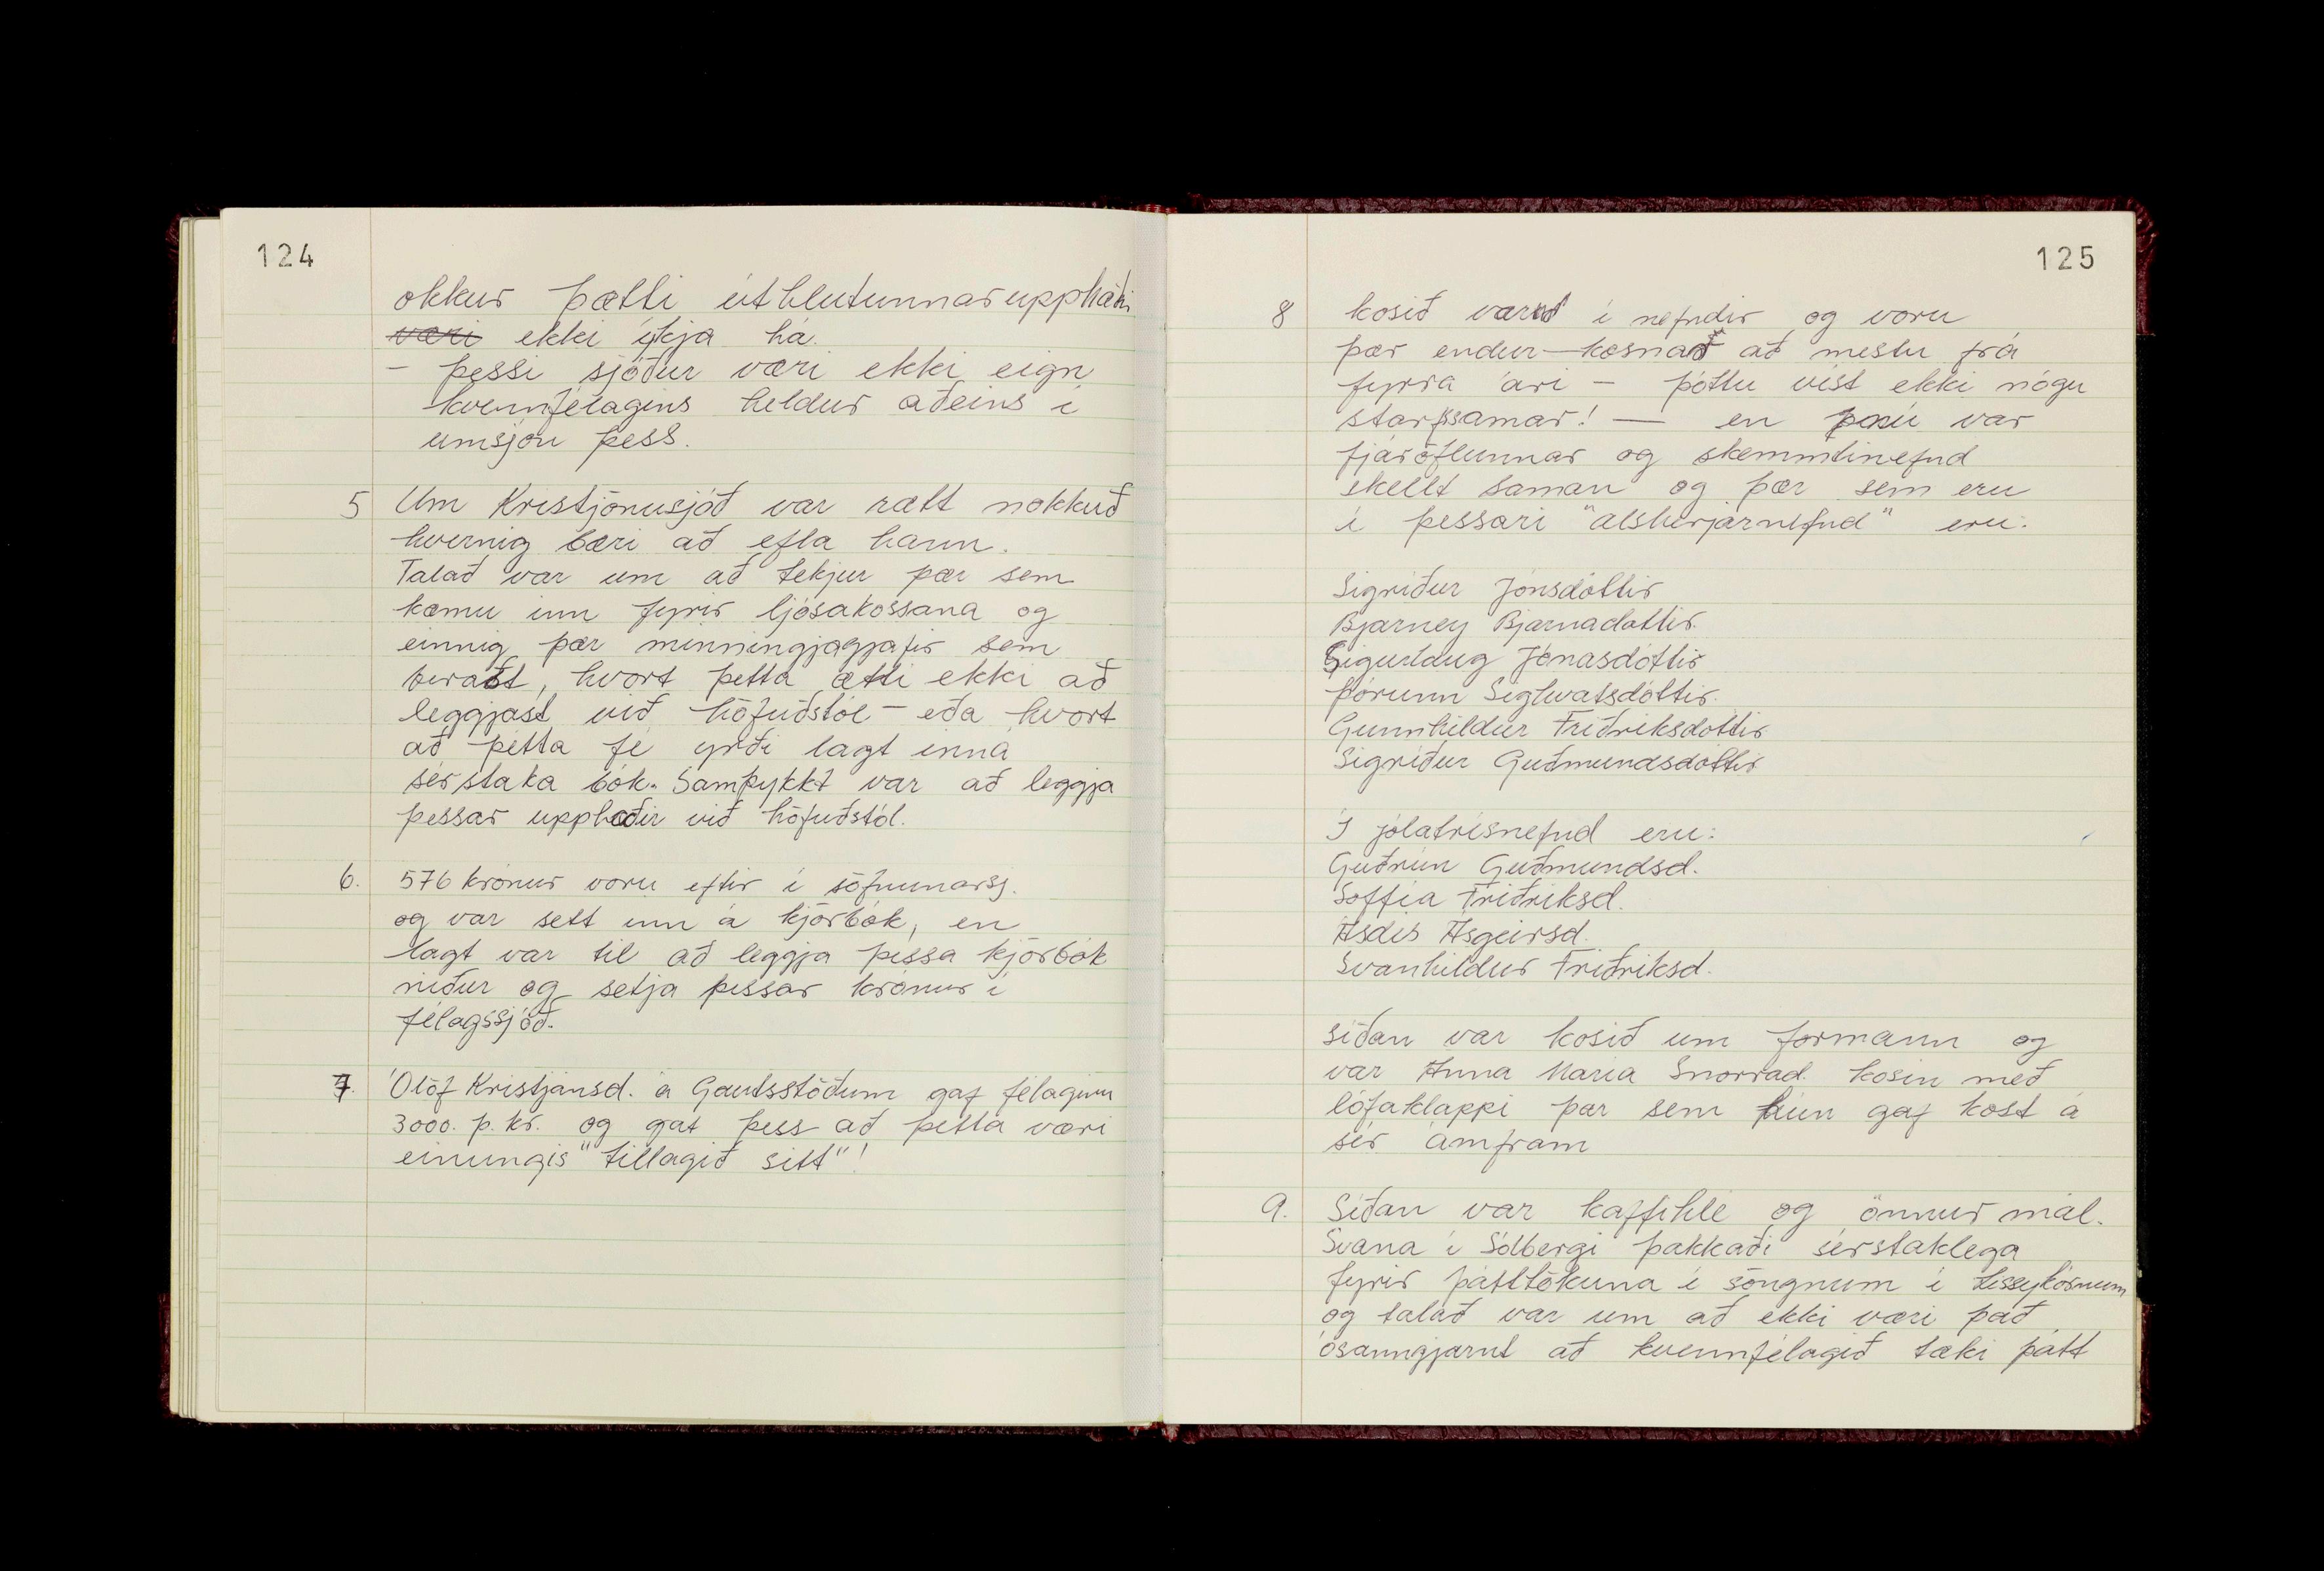 124
okkur þætti úthlutunnarupphæði
væri ekki ýkja há.
- þessi sjóður væri ekki eign
kvennfélagins heldur aðeins í
umsjón þess.
5 Um Kristjönusjóð var rætt nokkuð
hvernig bæri að efla hann.
Talað var um að tekjur þær sem
kæmu inn fyrir ljósakossana og
einnig þær minningjagjafir sem
berast, hvort þetta ætti ekki að
leggjast við höfuðstól - eða hvort
að þetta fé yrði lagt inná
sérstaka bók. Samþykkt var að leggja
þessar upphæðir við höfuðstól.
6. 576 krónur voru eftir í söfnunarsj.
og var sett inn á kjörbók, en
lagt var til að leggja þessa kjörbók
niður og setja þessar krónur í
félagssjóð.
7. Ólöf Kristjánsd. á Gautsstöðum gaf félaginu
3000. p. kr. og gat þess að þetta væri
einungis "tillagið sitt"!
125
8 kosið var í nefndir og voru
þær endur-kosnar að mestu frá
fyrra ári - þóttu víst ekki nógu
starfsamar! — en nú var
fjáröflunnar og skemmtinefnd
skellt saman og þær sem eru
í þessari "alsherjarnefnd" eru:
Sigríður Jónsdóttir
Bjarney Bjarnadóttir.
Sigurlaug Jónasdóttir
Þórunn Sighvatsdóttir.
Gunnhildur Friðriksdóttir
Sigríður Guðmundsdóttir
Í jólatrésnefnd eru:
Guðrún Guðmundsd.
Soffía Friðriksd.
Ásdís Ásgeirsd.
Svanhildur Friðriksd.
síðan var kosið um formann og
var Anna María Snorrad. kosin með
lófaklappi þar sem hún gaf kost á
sér ámfram
9. Síðan var kaffihlé og önnur mál.
Svana í Sólbergi þakkaði sérstaklega
fyrir þátttökuna í söngnum í
og talað var um að ekki væri það
ósanngjarnt að kvennfélagið tæki þátt